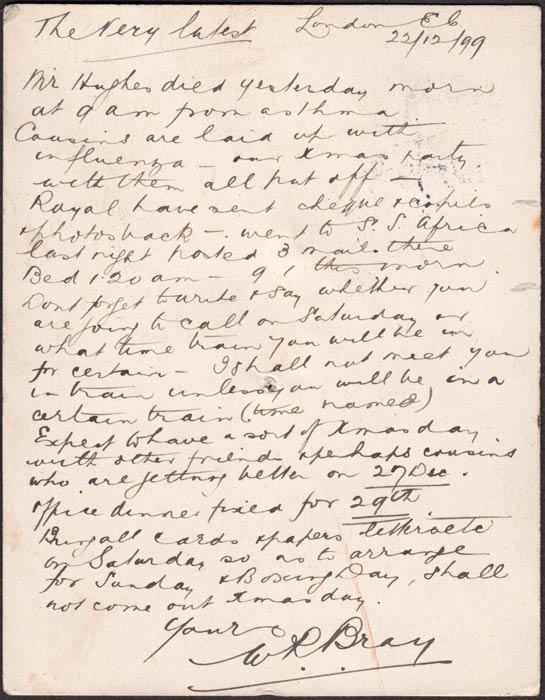 The Very latest London E C
22/12/99
Mr Hughes died yesterday morn
at 9 am from asthma
Cousins are laid up with
influenza – our Xmas party
with them all put off –
Royal have sent cheque & copies
& photos back – went to S. S. Africa
last night posted 3 mails there
Bed 1.20 am – 9 / this morn.
Dont forget to write & say whether you
are going to call on Saturday or
what time train you will be in
for certain – I shall not meet you
in train unless you will be in a
certain train (time named)
Expect to have a sort of Xmas day
with other friends & perhaps cousins
who are getting better on 27 Dec.
Office dinner fixed for 29th.
Bring all cards & papers
on Saturday so as to arrange
for Sunday & Boxing Day, shall
not come out Xmas day.
Your
W R Bray